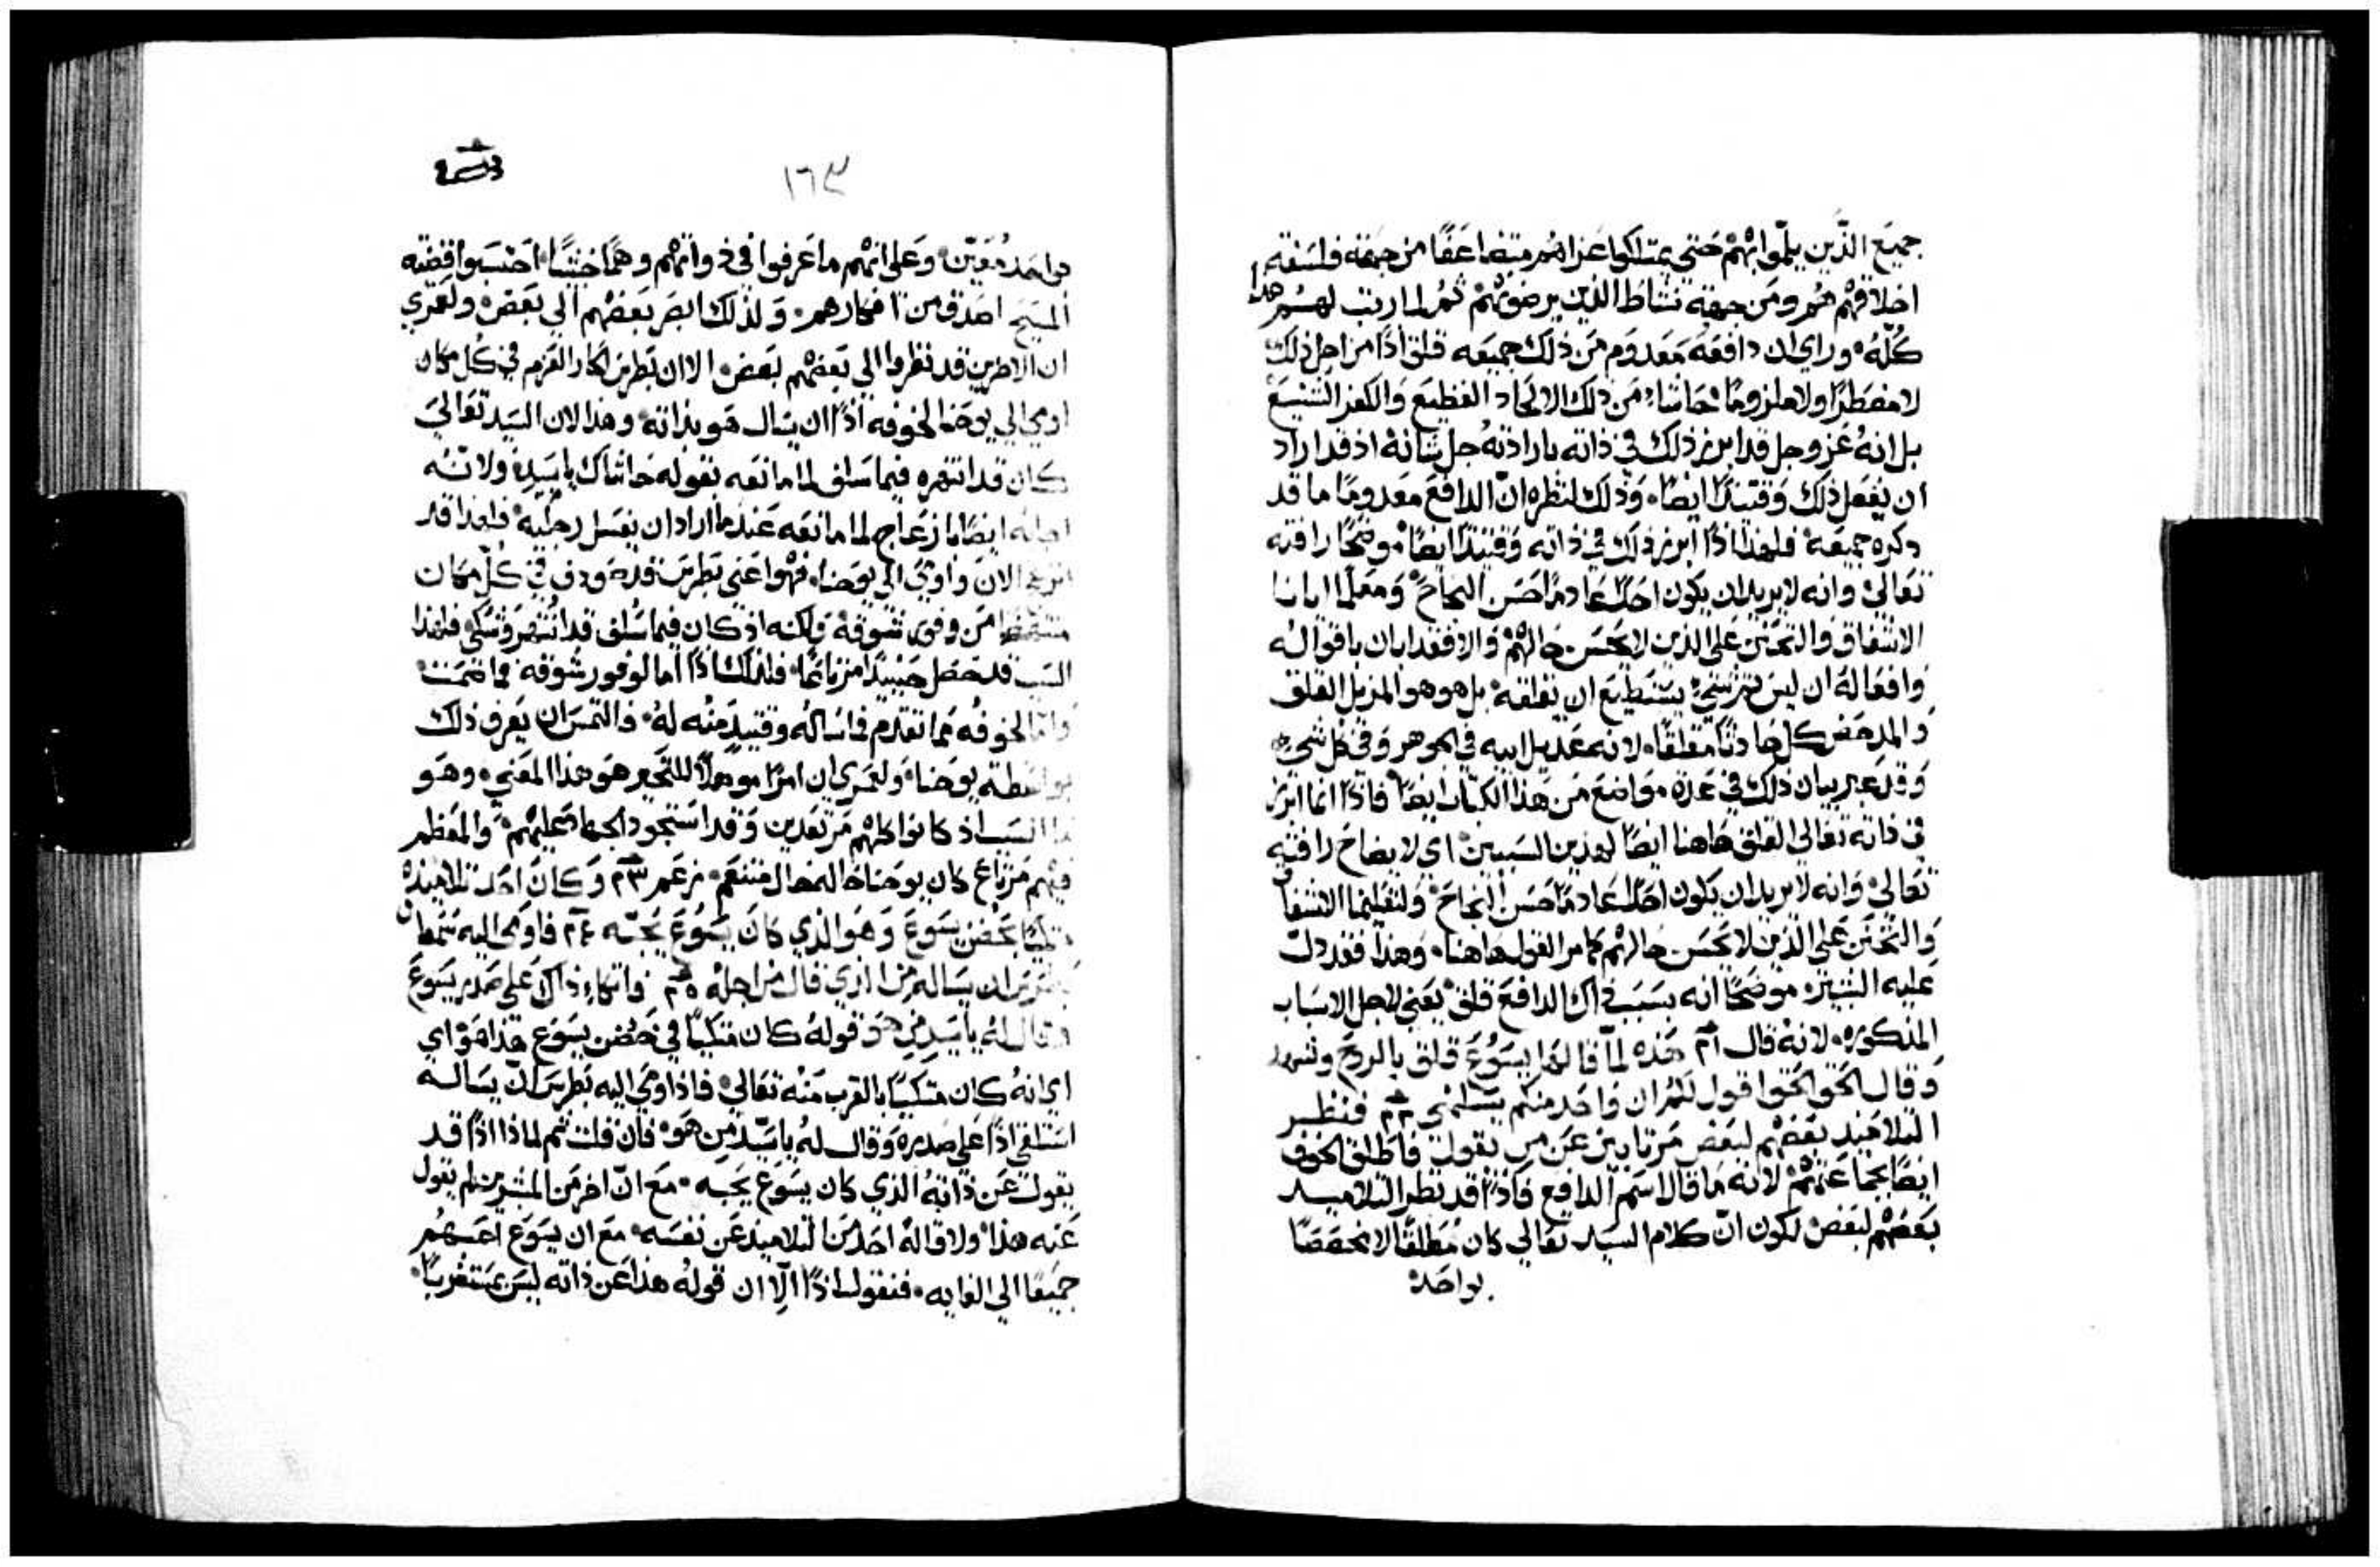 جميع الذين يلموا بهم حتي يمتلكوا عزاهم متضاعفًا من جهة فلسفة
اخلاقهم هم ومن جهة نشاط الذين يرضونهم ثم لما رتب لهم هذا
كله وراي ان دافعه معدوم من ذلك جميعه قلق اذًا من اجل ذلك
لا مضطرًا ولا ملزومًا حاشاه من ذلك الالحاد الفظيع والكفر الشنيع
بل انه عز وجل قد ابرز ذلك في ذاته بارادته جل شانه اذ قد اراد
ان يفعل ذلك وقتيذٍ ايضًا وذلك لنظره ان الدافع معدومًا ما قد
ذكره جميعه فلهذا اذًا ابرز ذلك في ذاته وقتيذٍ ايضًا موضحًا رافته
تعالي وانه لا يريد ان يكون احدًا عادمًا حسن النجاح ومعلمًا ايانا
الاشفاق والتحنن علي الذين لا يحسن حالهم والا فقد ابان باقواله
وافعاله ان ليس ثم شي يستطيع ان يقلقه بل هو هو المزيل القلق
والمدحض كل حادثًا مقلقًا لانه عديل ابيه في الجوهر وفي كل شي
وقد عبر بيان ذلك في عدة مواضع من هذا الكتاب ايضًا فاذًا انما ابرز
في ذاته تعالي القلق هاهنا ايضًا لهذين السببين اي لايضاح رافته
تعالي وانه لا يريد ان يكون احدًا عادمًا حسن النجاح ولتعليمنا الاشفاق
والتحنن علي الذين لا يحسن حالهم كما مر القول هاهنا وهذا فقد دل
عليه البشير موضحًا انه بسبب ذاك الدافع قلق يعني لاجل الاسباب
المذكوره لانه قال هذه لما قالها يسوع قلق بالروح وشهد
وقال الحق الحق اقول لكم ان واحد منكم يسلمني فنظر
التلاميذ بعضهم لبعض مرتابين عن من يقول فاطلق الخوف
ايضًا بجماعتهم لانه ما قال اسم الدافع فاذًا قد نظر التلاميذ
بعضهم لبعض لكون ان كلام السيد تعالي كان مطلقًا لا مخصصًا
بواحد
١٦٣
بواحد معين وعلي انهم ما عرفوا في ذواتهم وهمًا خبيثًا احتسبوا قضية
المسيح اصدق من افكارهم ولذلك ابصر بعضهم الي بعض ولعمري
ان الاخرين قد نظروا الي بعضهم بعض الا ان بطرس الحار العزم في كل مكان
اومي الي يوحنا لخوفه اذًا ان يسال هو بذاته وهذا لان السيد تعالي
كان قد انتهره فيما سلف لما مانعه بقوله حاشاك ياسيد ولانه
اجابه ايضًا بازعاج لما مانعه عندما اراد ان يغسل رجليه فلهذا قد
الان واومي الي يوحنا فهو اعني بطرس قد صودف في كل مكان
من وفور شوقه ولكنه اذ كان فيما سلف قد انتهر فلهذا
السبب قد حصل حينيذٍ مرتاعًا فلذلك اذًا اما لوفور شوقه فما صمت
واما لخوفه مما تقدم فما ساله وقتيذٍ منه له فالتمس ان يعرف ذلك
بواسطة يوحنا ولعمري ان امرًا موهلًا للتعجب هو هذا المعني وهو
السبب اذ كانوا كلهم مرتعدين وقد استحوذ الجهاد عليهم والمعظم
فيهم مرتاع كان يوحنا الحال متنعم زعم وكان احد تلاميذه
متكيًا بحضن يسوع وهو الذي كان يسوع يحبه فاومي اليه شمعان
بطرس ان يساله من الذي قال من اجله فاتكاء ذاك علي صدر يسوع
وقال له ياسيد من هو وقوله كان متكيًا في حضن يسوع هذا هو اي
اي انه كان متكيًا بالقرب منه تعالي فاذ اومي اليه بطرس ان يساله
استلقي اذًا علي صدره وقال له ياسيد من هو فان قلت ثم لماذا اذًا قد
يقول عن ذاته الذي كان يسوع يحبه مع ان اخر من المبشرين لم يقول
عنه هذا ولا قاله احد من التلاميذ عن نفسه مع ان يسوع احبهم
جميعًا الي الغايه فنقول اذًا الا ان قوله هذا عن ذاته ليس بمستغربًا